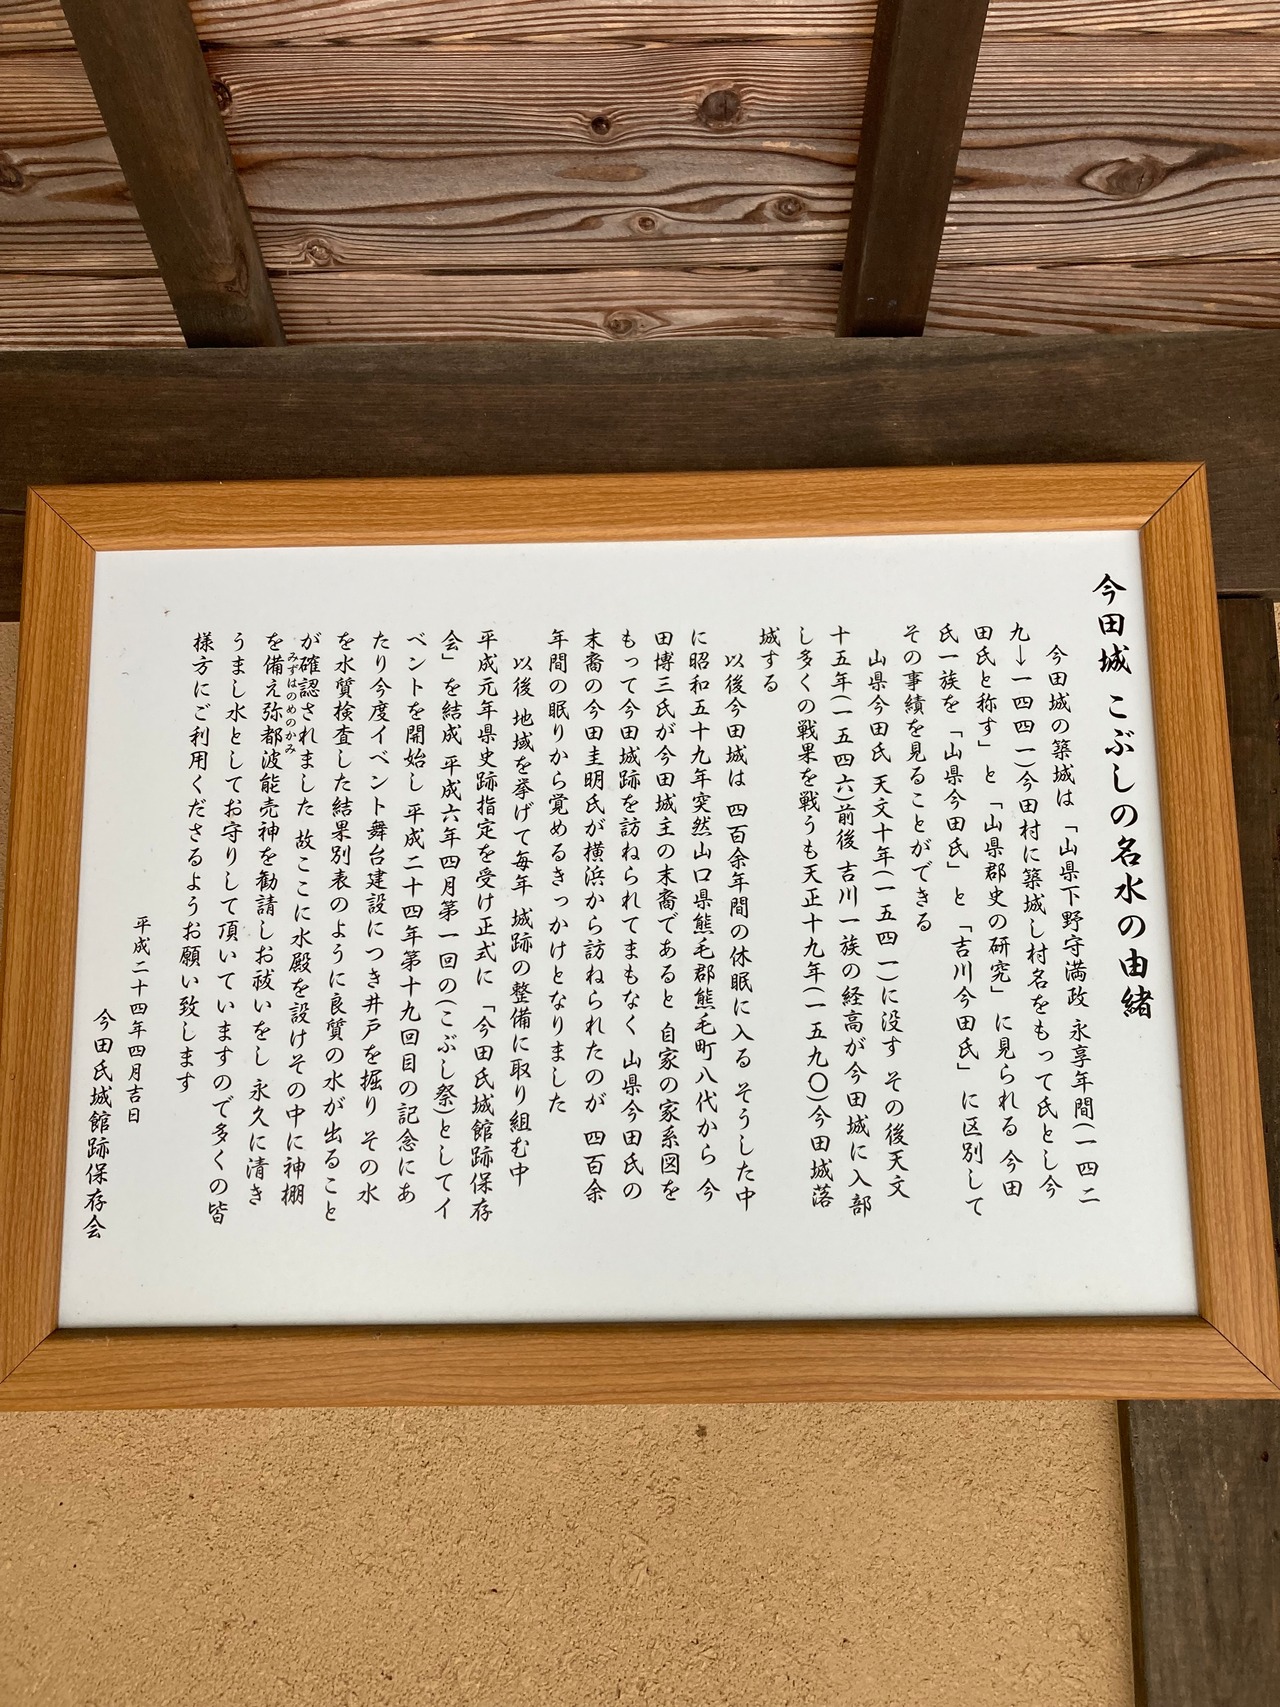 今田城 こぶしの名水の由緒
今田城の築城は 「山県下野守満政 永享年間(一四二
九→一四四一)今田村に築城し村名をもって氏とし今
田氏と称す」と「山県郡史の研究」に見られる 今田
氏一族を「山県今田氏」と「吉川今田氏」に区別して
その事績を見ることができる
山県今田氏 天文十年(一五四一)に没す その後天文
十五年(一五四六)前後 吉川一族の経高が今田城に入部
し多くの戦果を戦うも天正十九年(一五九〇)今田城落
城する
以後今田城は 四百余年間の休眠に入る そうした中
に昭和五十九年突然山口県熊毛郡熊毛町八代から 今
田博三氏が今田城主の末裔であると 自家の家系図を
もって今田城跡を訪ねられてまもなく 山県今田氏の
末裔の今田圭明氏が横浜から訪ねられたのが 四百余
年間の眠りから覚めるきっかけとなりました
以後 地域を挙げて毎年 城跡の整備に取り組む中
平成元年県史跡指定を受け正式に「今田氏城館跡保存
会」を結成 平成六年四月第一回の(こぶし祭)としてイ
ベントを開始し 平成二十四年第十九回目の記念にあ
たり今度イベント舞台建設につき井戸を掘り その水
を水質検査した結果別表のように良質の水が出ること
が確認されました 故ここに水殿を設けその中に神棚
みずはのめのかみ
を備え弥都波能売神を勧請しお祓いをし 永久に清き
うまし水としてお守りして頂いていますので多くの皆
様方にご利用くださるようお願い致します
平成二十四年四月吉日
今田氏城館跡保存会